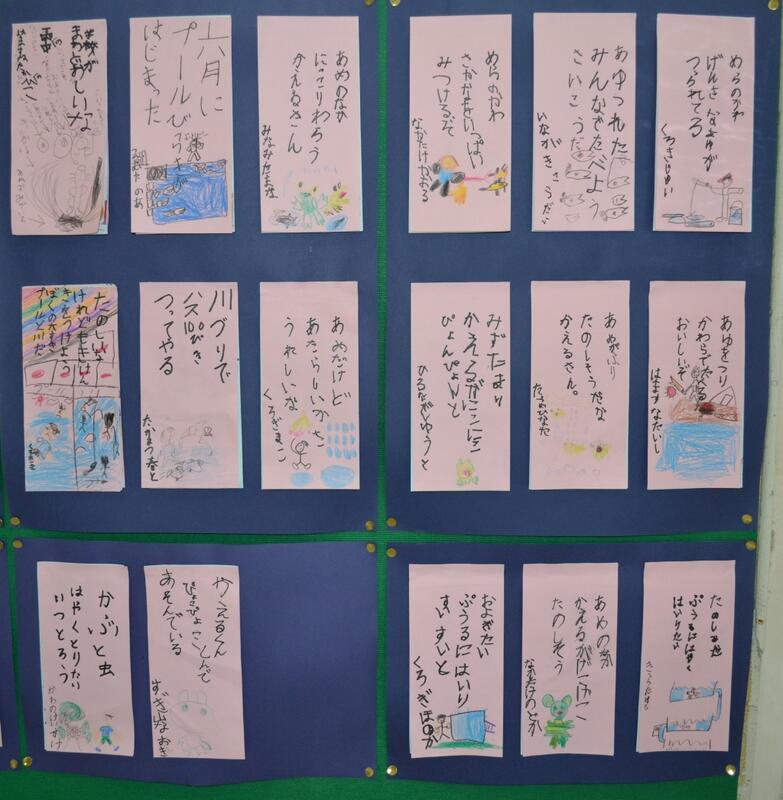 めらのかわ
げんきなあゆが
つられてる
くろぎゆい
あゆつれた
みんなでたべよう
さいこうだ
いながきこうだい
めらのかわ
さかなをいっぱい
みつけるぞ
なかたけかおる
あめのなか
にっこりわらう
かえるさん
みなみたまな
六月に
プールびらき
はじまった
のあ
あゆをつり
かわらでたべる
おいしいぞ
はまずなたいし
あめがふり
たのしそうだな
かえるさん。
みずたまり
かえるがにこにこ
ぴょんぴょんと
ひろながゆうと
あめだけど
あたらしいかさ
うれしいな
くろぎまこ
川づりで
ハス100ぴき
つってやる
たかまつ春と
たのしいな
けれどもきけん
きをつけよう
ぼくの大すき
プールと川だ
たのしみだ
ぷうるにはやく
はいりたい
あめの中
かえるがけこけこ
たのしそう
なかたけのどか
およぎたい
ぷうるにはいり
すいすいと
くろぎほのか
かえるくん
ぴょこぴょことんで
あそんでいる
かぶと虫
はやくとりたい
いつとろう
かわのけいすけ